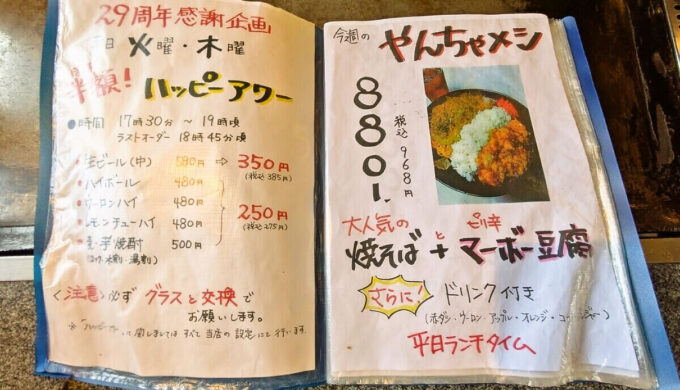 29周年感謝企画
火曜・木曜
半額！ハッピーアワー
●時間 17時30分 ～ 19時頃
ラストオーダー 18時45分頃
・生ビール(中) 580円 ⇒ 350円
(税込385円)
・ハイボール 480円
・ウーロンハイ 480円
・レモンチューハイ 480円
・麦・芋焼酎 500円
250円
(税込275円)
〈注意〉必ず グラスと交換で
お願いします。
※「ハッピーアワー」に関しましては すべて 当店の 設定にて 行います。
今週の やんちゃメシ
880円
税込968円
大人気の ピリ辛
焼そば と + マーボー豆腐
さらに！ ドリンク付き
平日ランチタイム